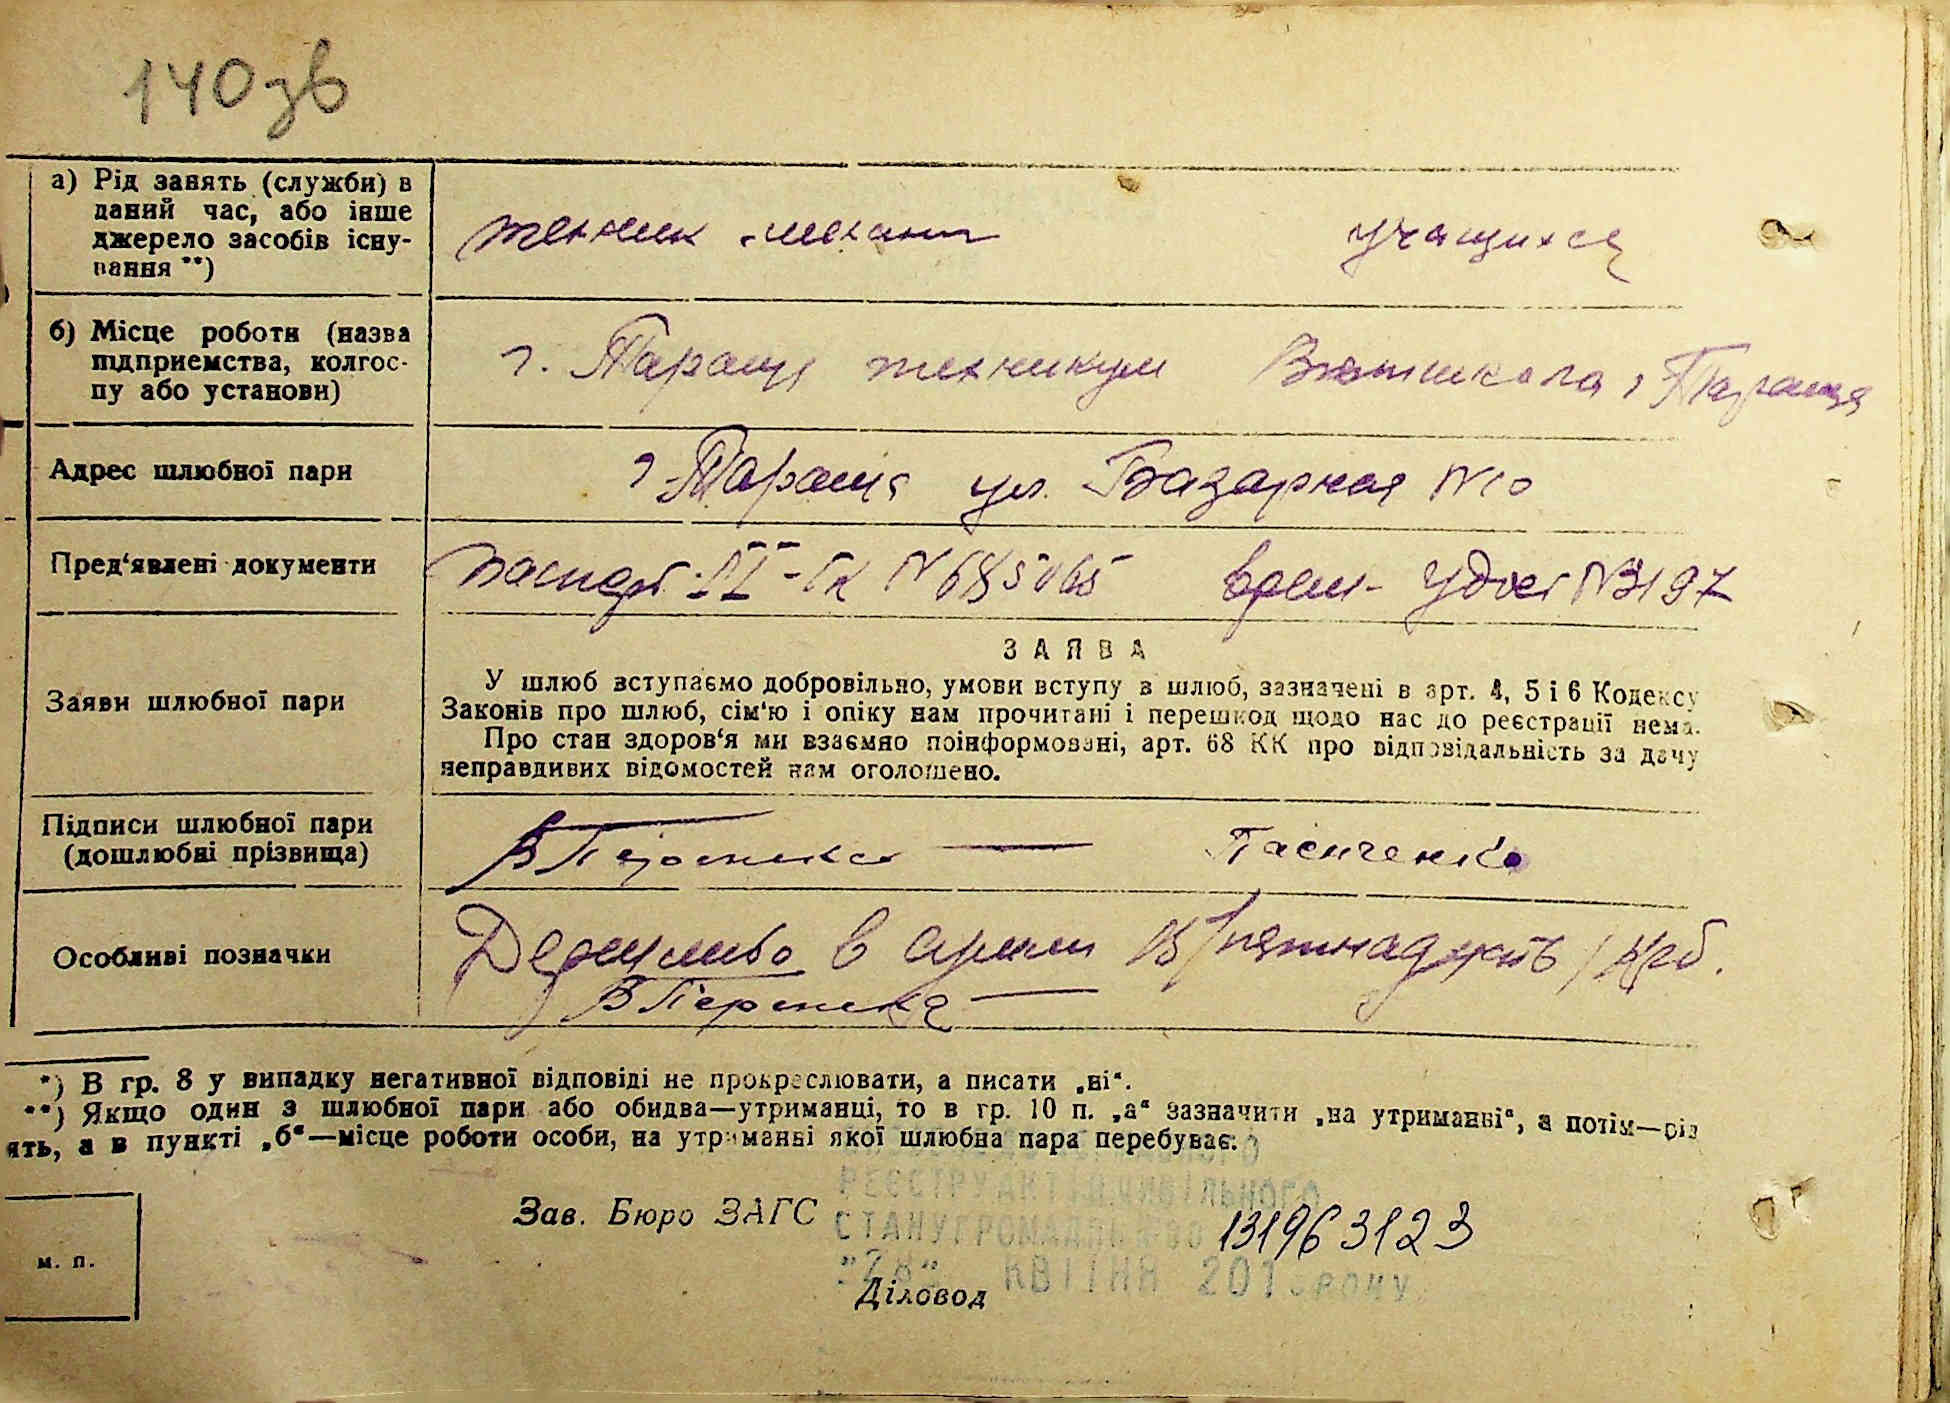 140зв
а) Рід занять (службы) в
даний час, або інше
джерело засобів існу-
вання **)
техник механик учащихся
б) Місце роботи (назва
підприемства, колгос-
пу або установи)
г. Тараща техникум г. Тараща
Адрес шлюбної пари
г. Тараща ул. Базарная N 10
Пред'явлені документи
паспорт N 685065 врем- удост N 3197
ЗАЯВА
Заяви шлюбної пари
У шлюб вступаємо добровільно, умови вступу в шлюб, зазначені в арт. 4, 5 і 6 Кодексу
Законів про шлюб, сім'ю і опіку нам прочитані і перешкод щодо нас до реєстрації нема.
Про стан здоров'я ми взаємно поінформовані, арт. 68 КК про відповідальність за дачу
неправдивих відомостей нам оголошено.
Підписи шлюбної пари
(дошлюбні прізвища)
Пасиченко
Особливі позначки
в сумм 15 /пятнадцать/ крб.
*) В гр. 8 у випадку негативної відповіді не прокреслювати, а писати „ні“.
**) Якщо один з шлюбної пари або обидва—утриманці, то в гр. 10 п. „а“ зазначити „на утриманні“, а потім—рід
ять, а в пункті „б“—місце роботи особи, на утриманні якої шлюбна пара перебуває.
РЕЄСТРУ АКТІВ ЦИВІЛЬНОГО
Зав. Бюро ЗАГС
СТАНУ ГРОМАДЯН ЗА
13196 3123
"28" КВІТНЯ 201 РОКУ
м. п.
Діловод